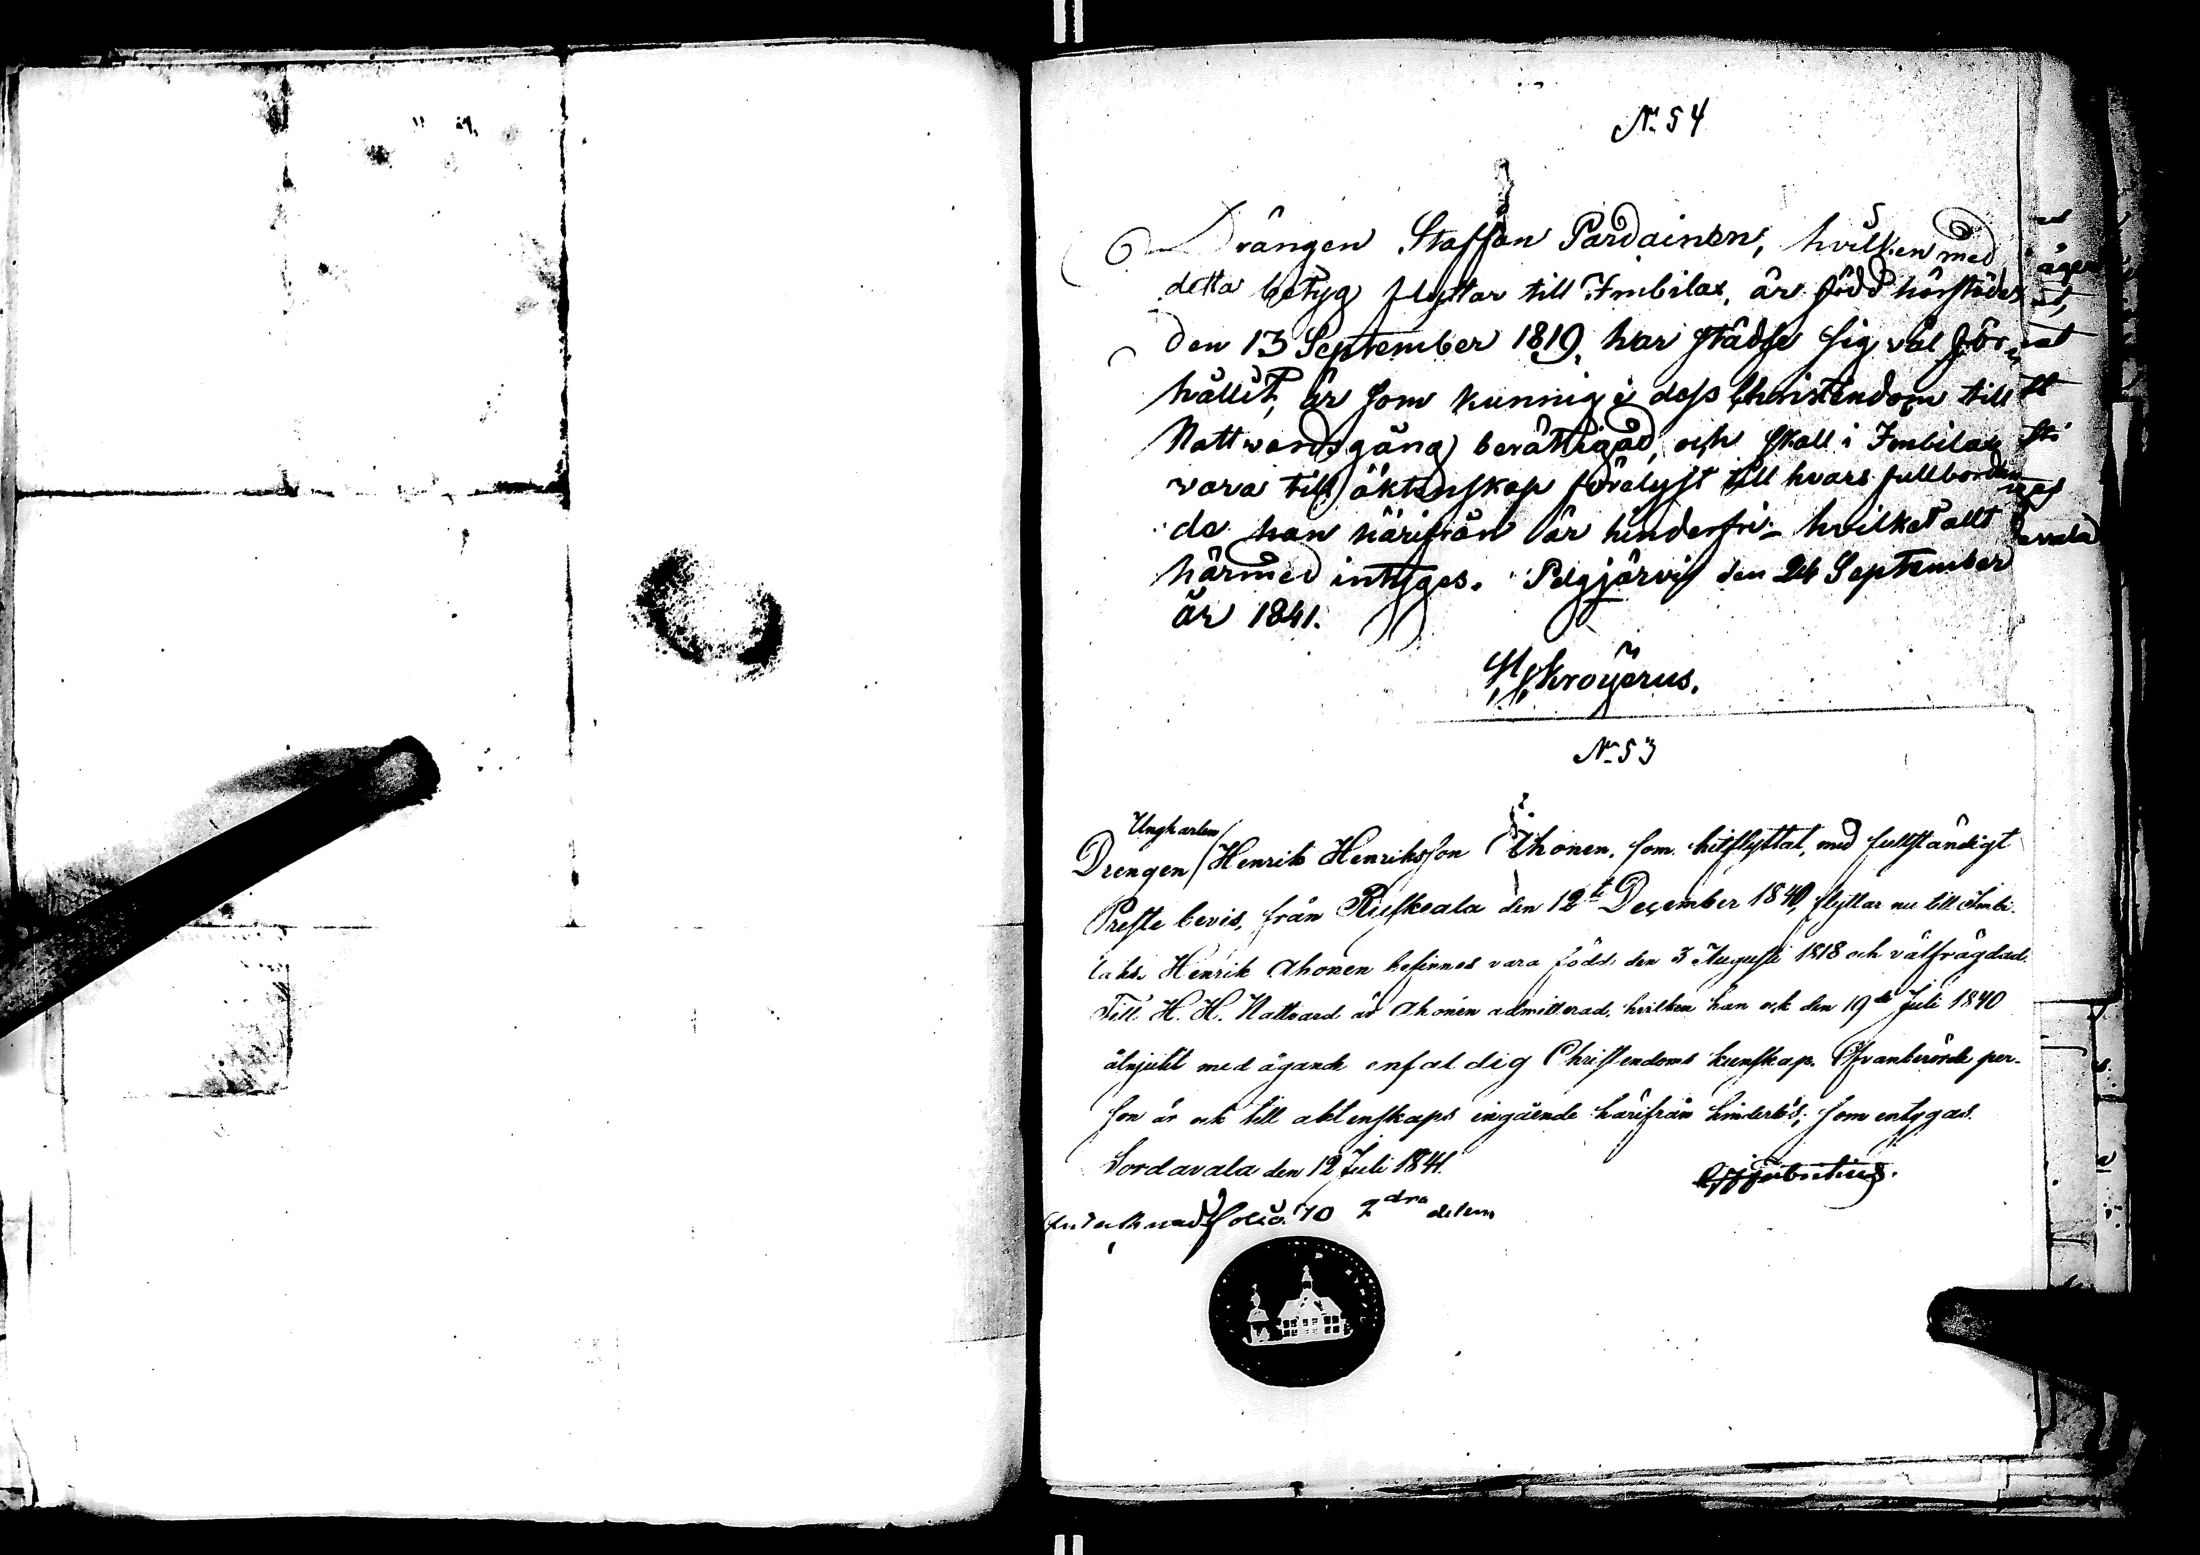 N. 54
Drängen Staffan Pardainen, hvilken med
detta betyg flyttar till Imbilax, är född härstädes
den 13 September 1819, har städse sig väl för-
hållit, är som kunnig i dess Christendom till
Nattvardsgång berättigad, och skall i Imbilax
vara till äktenskap förelyst till hvars fullbordan
de han härifrån är hinderfri - hvilket allt
härmed intygas. Pelgjärvi den 24 September
år 1841.
Kroÿerus.
N. 53
Ungkarlen
Drengen / Henrik Henriksson Ahonen, som hitflyttat, med fullständigt
Preste bevis, från Ruskeala den 12te December 1840, flyttar nu till Imbi-
laks. Henrik Ahonen befinnes vara född den 3 Augusti 1818 och välfrägdad.
Till H. H. Nattvard är Ahonen admitterad, hvilken han ock den 19de Juli 1840
åtnjutit med ägande enfaldig Christendoms kunskap. Ofvanberörde per-
son är ock till aktenskaps ingående härifrån hinderlös; som intygas.
Sordavala den 12 Juli 1841.
folio 70 2dra delen